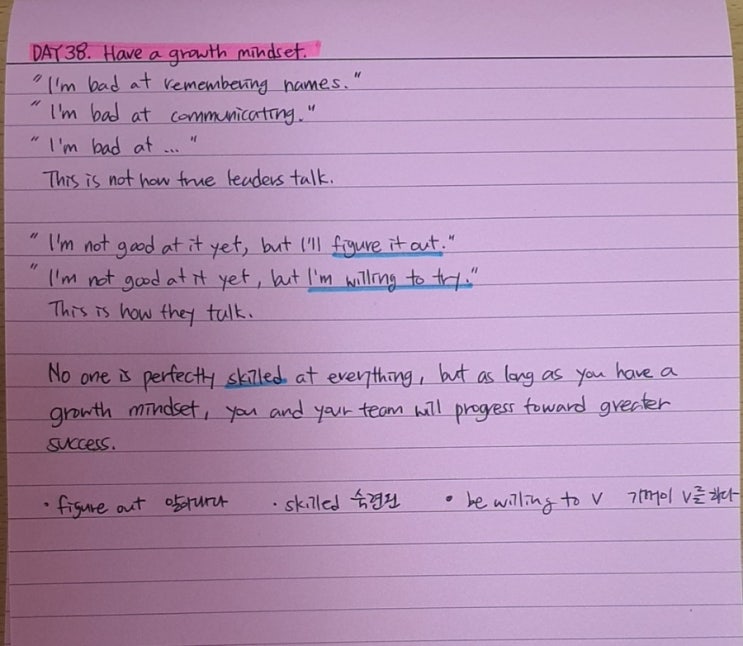 DAY 38. Have a growth mindset.
"I'm bad at remembering names."
"I'm bad at communicating."
"I'm bad at ... "
This is not how true leaders talk.
"I'm not good at it yet, but I'll figure it out."
"I'm not good at it yet, but I'm willing to try."
This is how they talk.
No one is perfectly skilled at everything, but as long as you have a
growth mindset, you and your team will progress toward greater
success.
· figure out 알아내다 · skilled 숙련된 · be willing to V 기꺼이 V를 하다